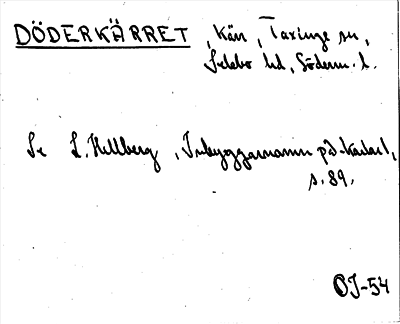 DÖDERKÄRRET, Kärr, Taxinge sn,
Selebo hd, Söderm. l.
Se L. Hellberg, Inbyggarnamn på -karlar,
s. 89.
OJ-54